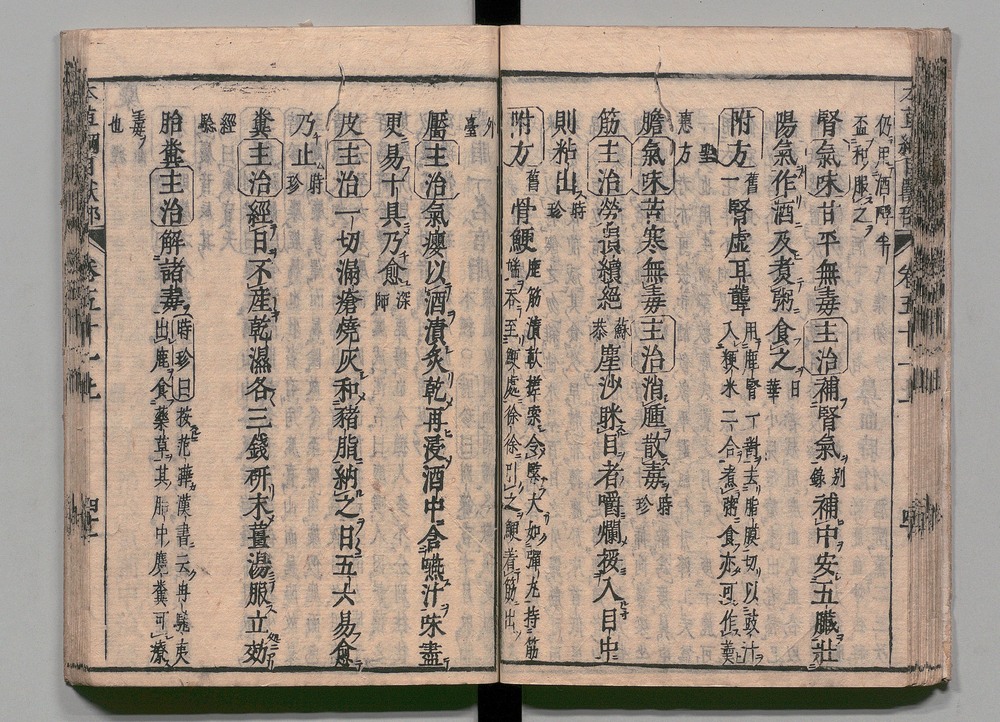 仍用酒時呷
盃和服之
腎氣味甘平無毒主治補腎氣別錄補中安五臟壯
陽氣作酒及煮粥食之日華
附方舊一腎虛耳聾用鹿腎一對去脂膜切以豉汁
入粳米二合煮粥食亦可作羹
聖惠方
膽氣味苦寒無毒主治消腫散毒時珍
筋主治勞損續絕蘇恭塵沙眯目者嚼爛挼入目中
則粘出時珍
附方舊一骨鯁鹿筋漬軟搓索令緊大如彈丸持筋
吞至鯁處徐徐引之鯁着筋出
外臺
靨主治氣癭以酒漬炙乾再浸酒中含嚥汁味盡
更易十具乃愈深師
皮主治一切漏瘡燒灰和豬脂納之日五六易愈
乃止時珍
糞主治經日不產乾濕各三錢研末薑湯服立效
經驗
胎糞主治解諸毒時珍曰按范曄漢書云冉駹夷
出鹿食藥草其胎中麑糞可療
毒也